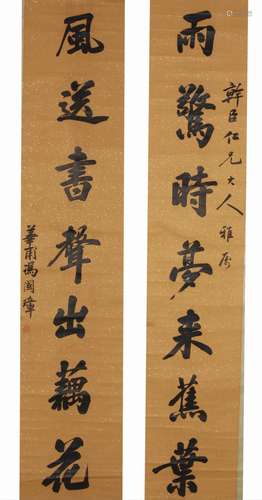 幹臣仁兄大人雅属
雨驚時夢来蕉葉
風送書聲出藕花
華甫馮國璋